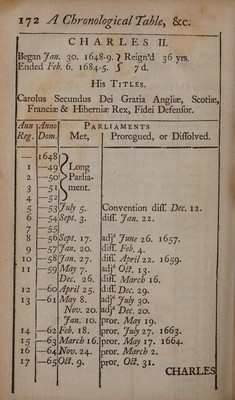 172 A Chronological Table, &c.
CHARLES II.
Began Jan. 30. 1648-9. } Reign'd 36 yrs.
Ended Feb. 6. 1684-5. } 7 d.
His TITLES.
Carolus Secundus Dei Gratia Angliæ, Scotiæ,
Franciæ & Hiberniæ Rex, Fidei Defensor.
Ann Anno PARLIAMENTS
Reg. Dom. Met, Prorogued, or Dissolved.
— 1648
1 —49 Long
2 —50 Parlia-
3 —51 ment.
4 —52
5 —53 July 5. Convention diss. Dec. 12.
6 —54 Sept. 3. diss. Jan. 22.
7 —55
8 —56 Sept. 17. adjd June 26. 1657.
9 —57 Jan. 20. diss. Feb. 4.
10 —58 Jan. 27. diss. April 22. 1659.
11 —59 May 7. adjd Oct. 13.
Dec. 26. diss. March 16.
12 —60 April 25. diss. Dec. 29.
13 —61 May 8. adjd July 30.
Nov. 20. adjd Dec. 20.
Jan. 10. pror. May 19.
14 —62 Feb. 18. pror. July 27. 1663.
15 —63 March 16. pror. May 17. 1664.
16 —64 Nov. 24. pror. March 2.
17 —65 Oct. 9. pror. Oct. 31.
CHARLES